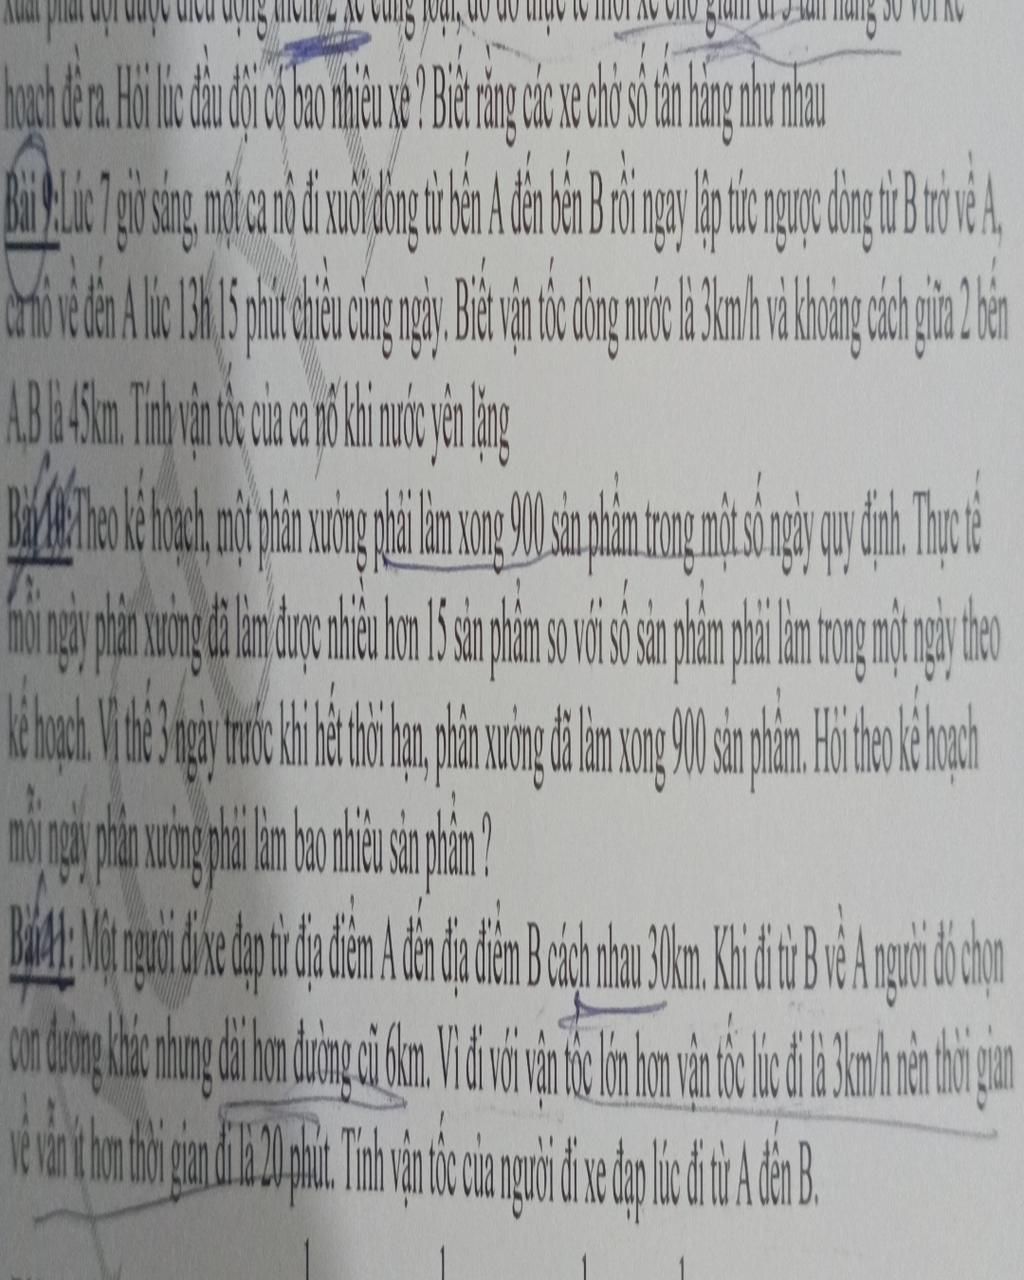 xuất phát đội được điều động thêm 2 xe cùng loại, do đó thực tế mỗi xe chở giảm đi 3 tấn hàng so với kế
hoạch đề ra. Hỏi lúc đầu đội có bao nhiêu xe ? Biết rằng các xe chở số tấn hàng như nhau
Bài 9:Lúc 7 giờ sáng, một ca nô đi xuôi dòng từ bến A đến bến B rồi ngay lập tức ngược dòng từ B trở về A,
ca nô về đến A lúc 13h 15 phút chiều cùng ngày. Biết vận tốc dòng nước là 3km/h và khoảng cách giữa 2 bến
A,B là 45km. Tính vận tốc của ca nô khi nước yên lặng
Bài 10:Theo kế hoạch, một phân xưởng phải làm xong 900 sản phẩm trong một số ngày quy định. Thực tế
mỗi ngày phân xưởng đã làm được nhiều hơn 15 sản phẩm so với số sản phẩm phải làm trong một ngày theo
kế hoạch. Vì thế 3 ngày trước khi hết thời hạn, phân xưởng đã làm xong 900 sản phẩm. Hỏi theo kế hoạch
mỗi ngày phân xưởng phải làm bao nhiêu sản phẩm ?
Bài 11: Một người đi xe đạp từ địa điểm A đến địa điểm B cách nhau 30km. Khi đi từ B về A người đó chọn
con đường khác nhưng dài hơn đường cũ 6km. Vì đi với vận tốc lớn hơn vận tốc lúc đi là 3km/h nên thời gian
về vẫn ít hơn thời gian đi là 20 phút. Tính vận tốc của người đi xe đạp lúc đi từ A đến B.